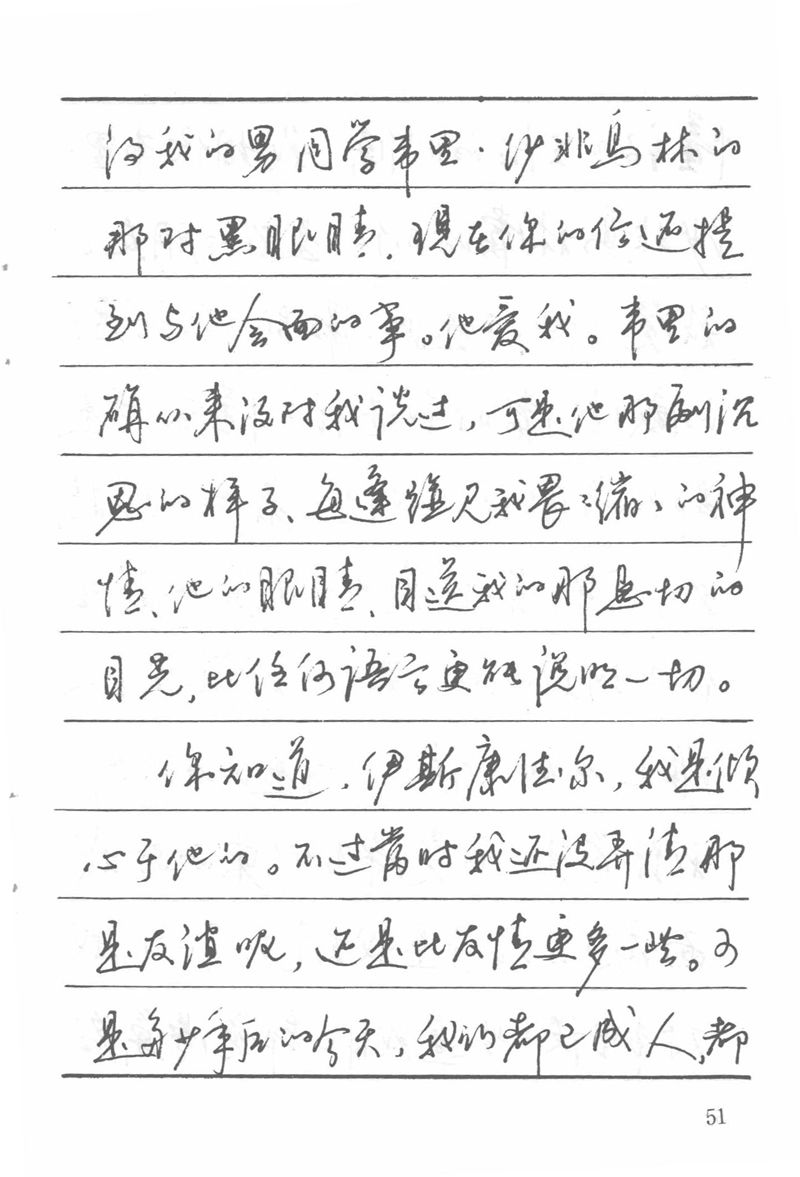 得我的男同学韦里·沙非乌林的
那对黑眼睛,现在你的信还提
到与他会面的事。他爱我。韦里的
确从来没对我谈过,可是他那副沉
思的样子、每逢碰见我畏畏缩缩的神
情、他的眼睛、目送我的那急切的
目光,比任何语言更能说明一切。
你知道,伊斯康德尔,我是倾
心于他的。不过当时我还没弄清那
是友谊呢,还是比友情更多一些。可
是多少年后的今天,我们都已成人,都
51